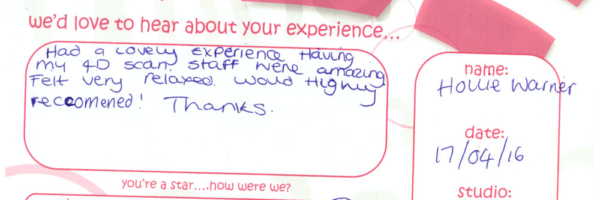 we'd love to hear about your experience...
Had a lovely experience Having
my 4D scan. staff were amazing
Felt very relaxed. would Highly
reccomened! Thanks.
you're a star....how were we?
name:
Hollie Warner
date:
17/04/16
studio: